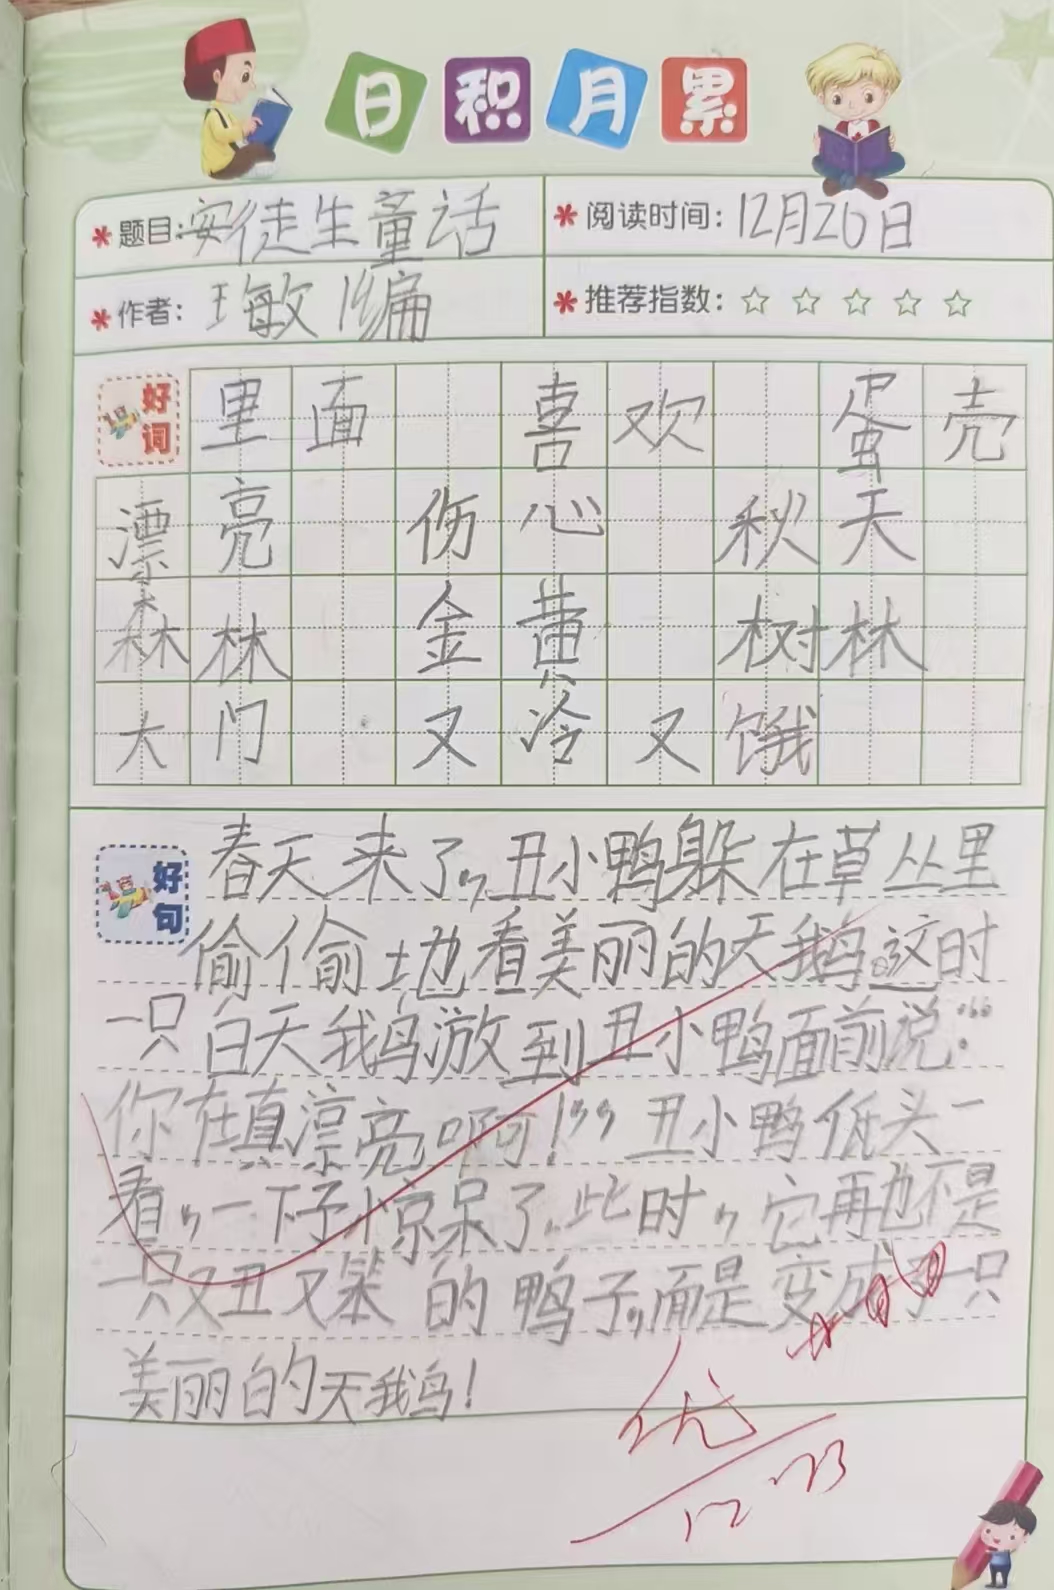 日积月累
题目:安徒生童话 阅读时间:12月26日
作者: 敏编 推荐指数:☆☆☆☆☆
好词 里面 喜欢 蛋壳
漂亮 伤心 秋天
森林 金黄 树林
大门 又冷又饿
好句 春天来了,丑小鸭躲在草丛里
偷偷地看美丽的天鹅。这时
一只白天鹅游到丑小鸭面前说:“
你在真漂亮啊!”丑小鸭低头一
看,一下子惊呆了.此时,它再也不是
一只又丑又笨的鸭子,而是变成了一只
美丽的天鹅!
优